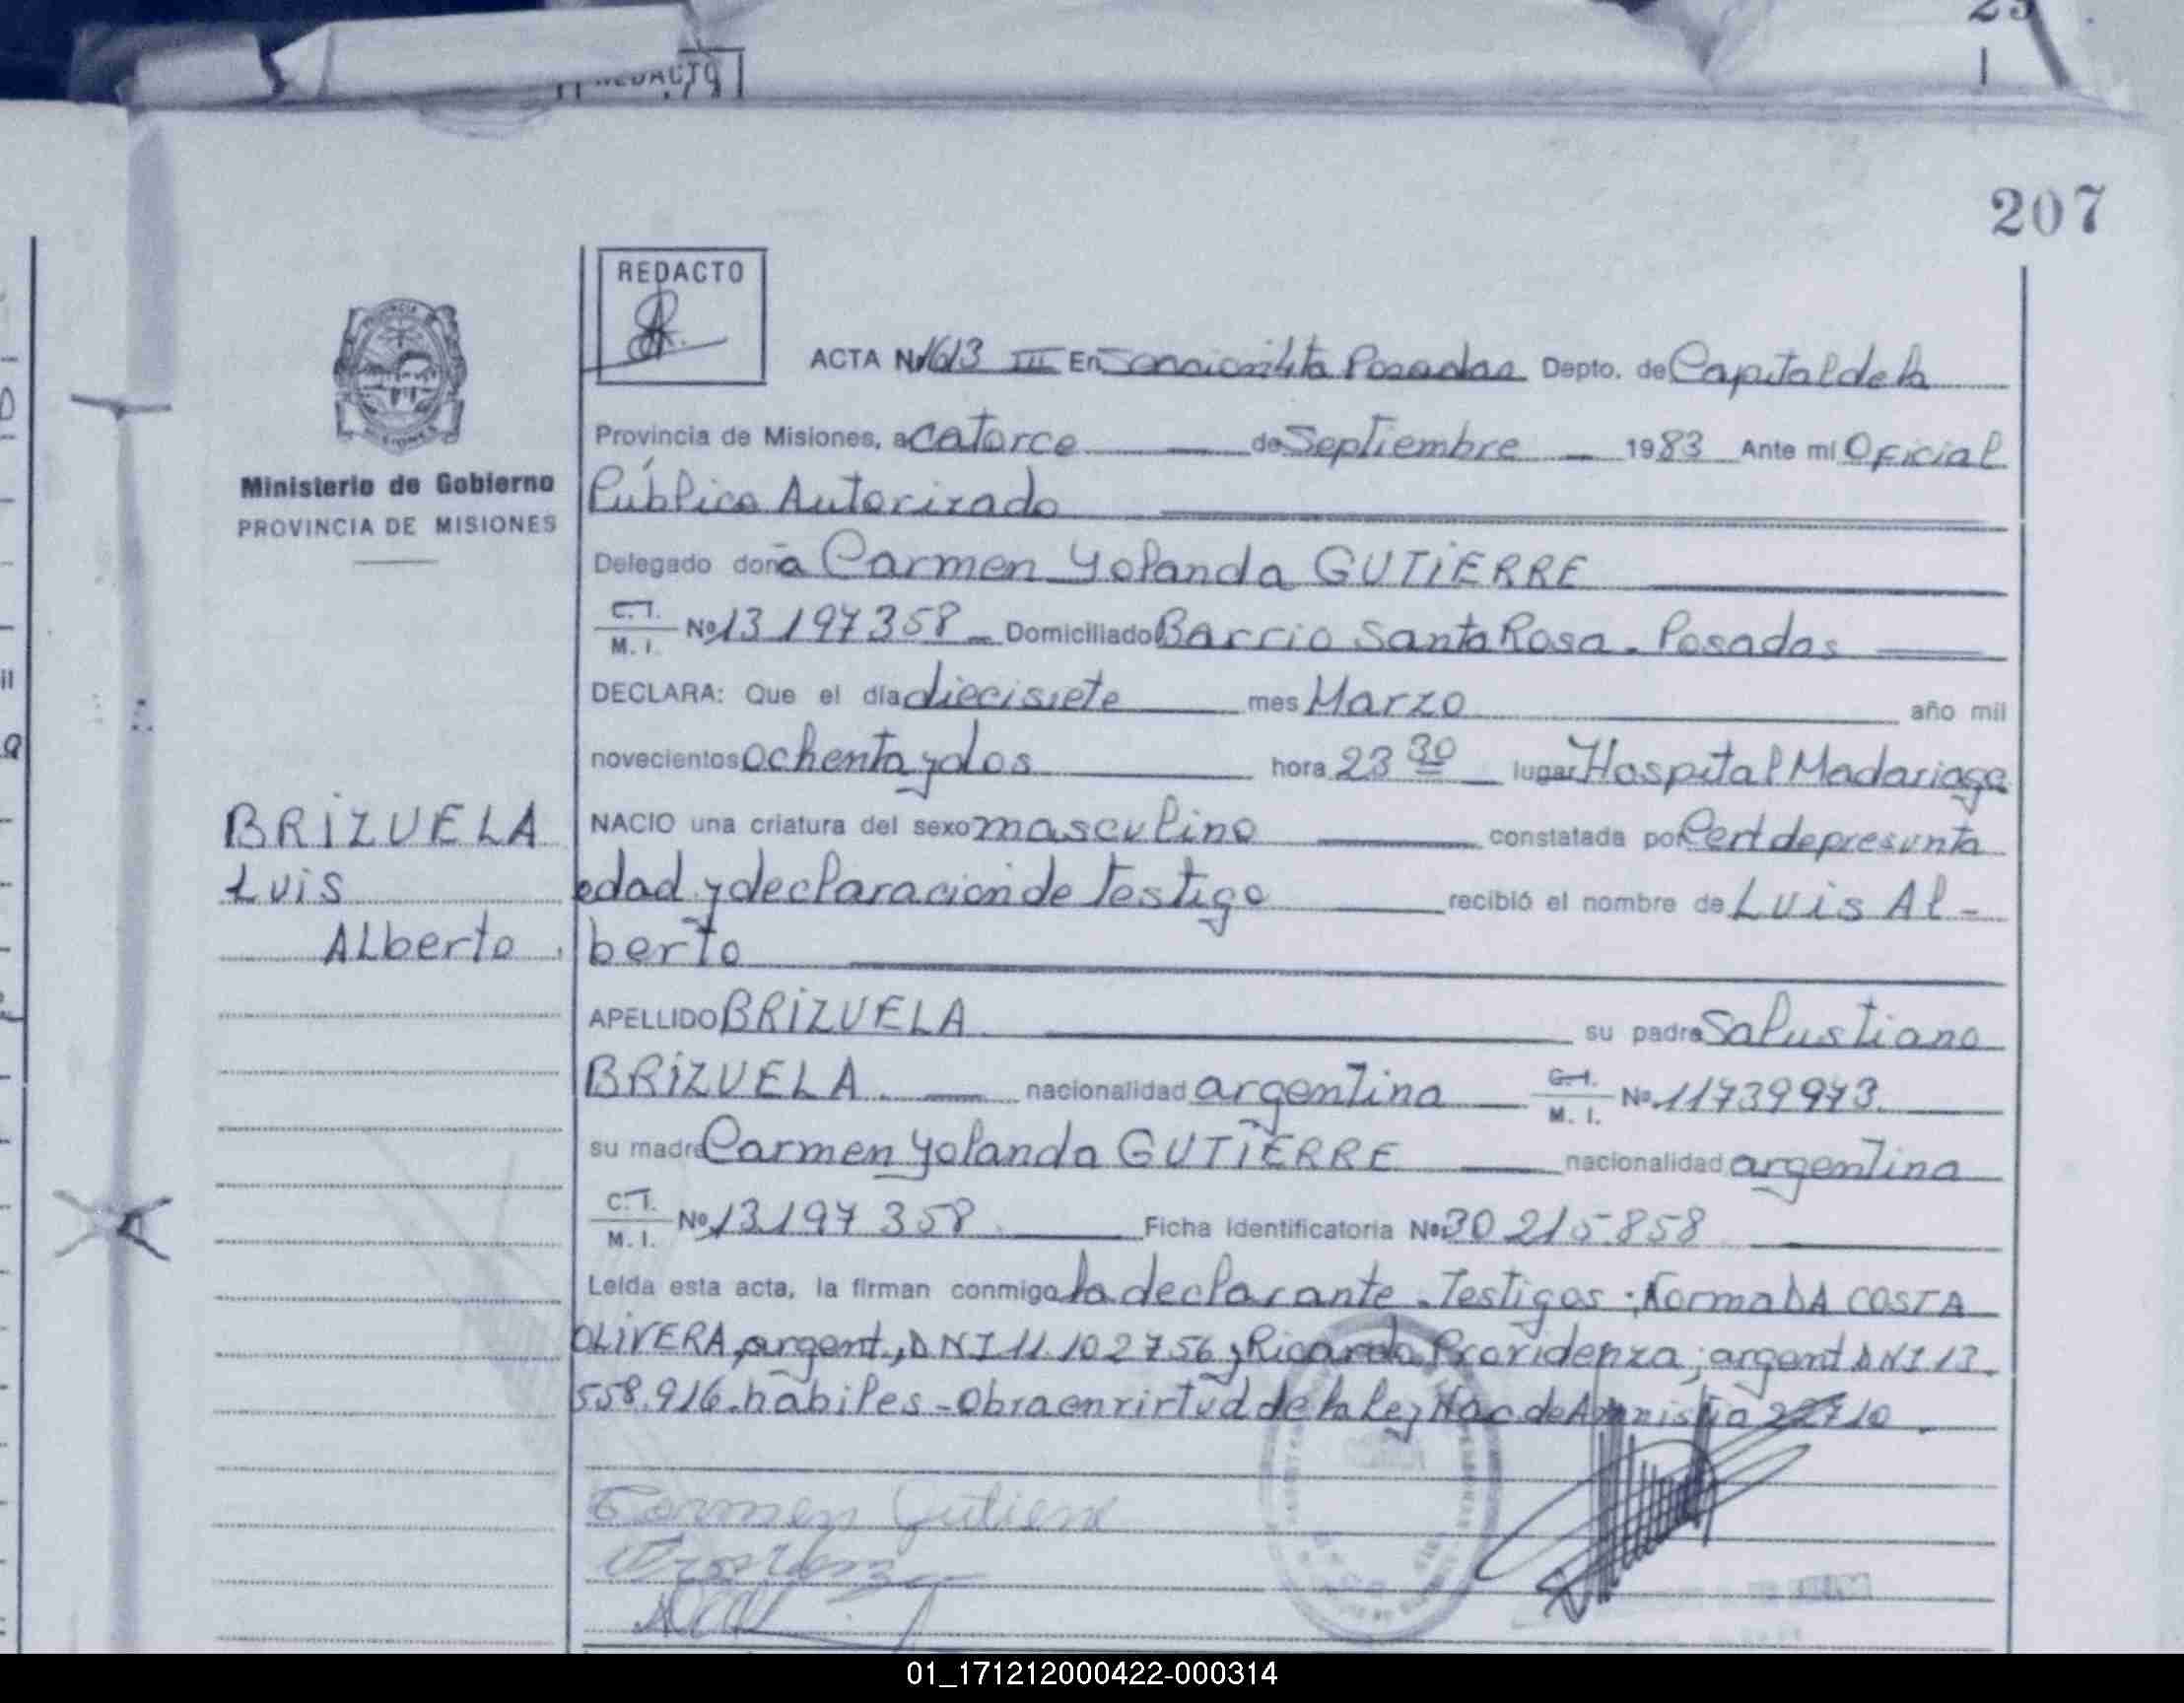 207
REDACTO
ACTA Nº 1613 III En Posadas Depto. de Capital de la
Provincia de Misiones, a catorce de Septiembre 1983 Ante mi Oficial
Público Autorizado
Ministerio de Gobierno
PROVINCIA DE MISIONES
Delegado doña Carmen Yolanda GUTIERRE
C.I. M. I. Nº 13197358 Domiciliado Barrio Santa Rosa - Posadas
DECLARA: Que el día diecisiete mes Marzo año mil
novecientos ochenta y dos hora 23 30 lugar Hospital Madariaga
BRIZUELA
Luis
Alberto
NACIO una criatura del sexo masculino constatada por Cert de presunta
edad y declaracion de Testigo recibió el nombre de Luis Al-
berto
APELLIDO BRIZUELA su padre Salustiano
BRIZUELA nacionalidad argentina C.I. M. I. Nº 11739973
su madre Carmen Yolanda GUTIERRE nacionalidad argentina
C.I. M. I. Nº 13197358 Ficha Identificatoria Nº 30215858
Leída esta acta, la firman conmigo la declarante. Testigos: Norma DA COSTA
OLIVERA, argent., DNI 11.102756 y Ricardo Providenza, argent DNI 13
558.916. hábiles - Obra en virtud de la Ley Nac de Amnistia 22710
Carmen Gutierre
01_171212000422-000314